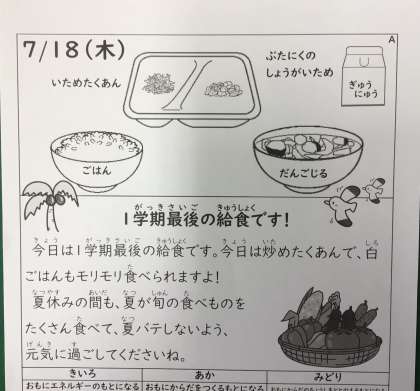 7/18(木)
A
いためたくあん
ぶたにくの
しょうがいため
ぎゅう
にゅう
ごはん
だんごじる
1学期最後の給食です!
今日は1学期最後の給食です。今日は炒めたくあんで、白
ごはんもモリモリ食べられますよ!
夏休みの間も、夏が旬の食べものを
たくさん食べて、夏バテしないよう、
元気に過ごしてくださいね。
きいろ
あか
みどり
おもにエネルギーのもとになる
おもにからだをつくるもとになる